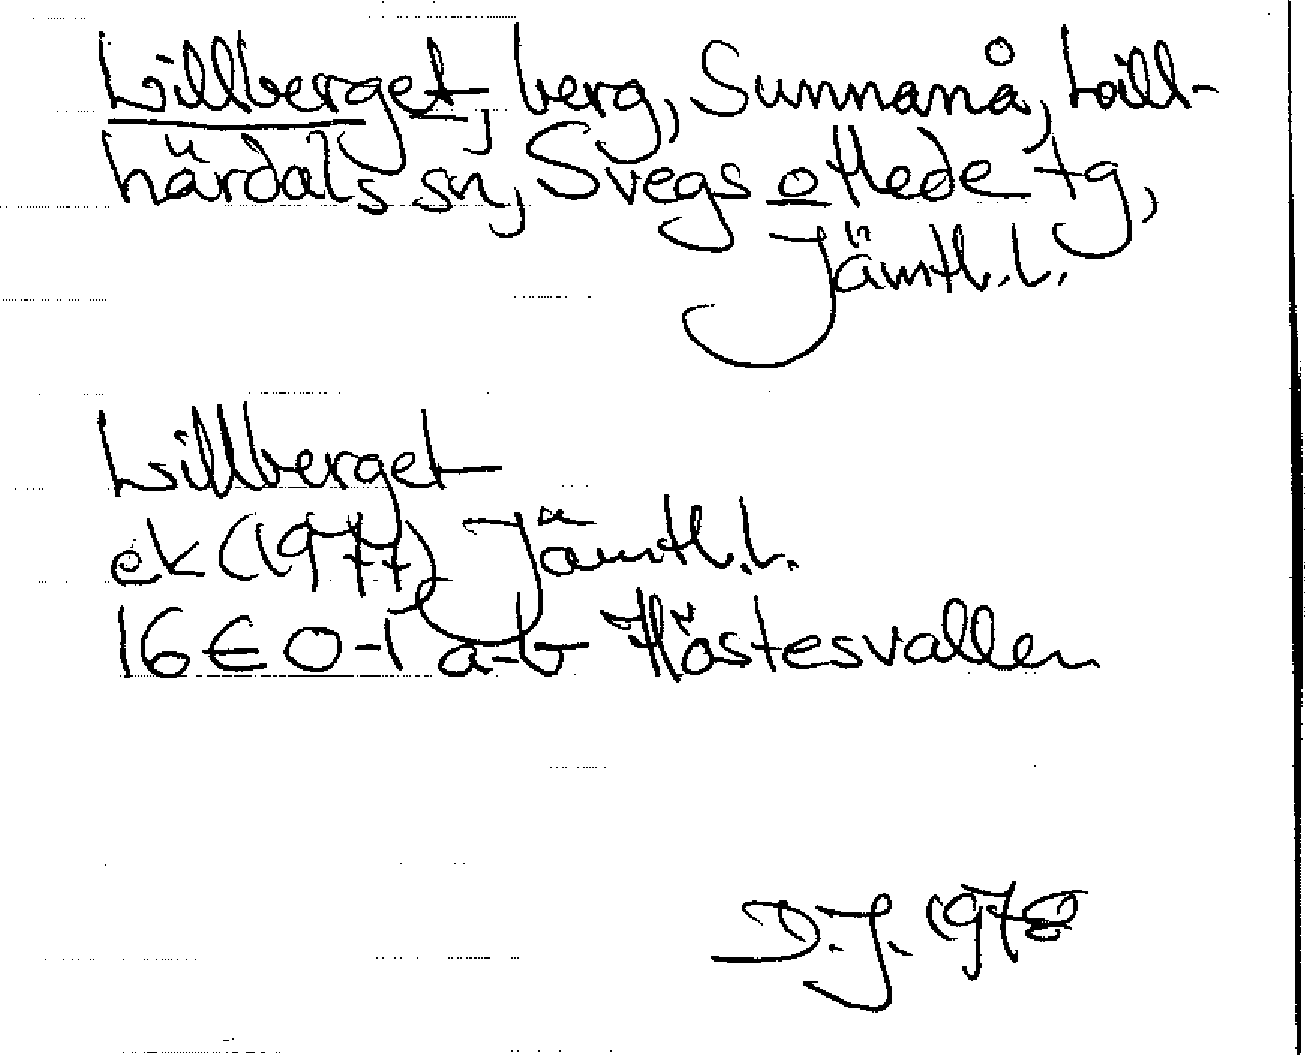 Lillberget, berg, Sunnanå, Lill-
härdals sn, Svegs o Hede tg,
Jämtl.l.
Lillberget
ek (1977) Jämtl.l.
16E 0-1 a-b Höstesvallen
D.J. 1978